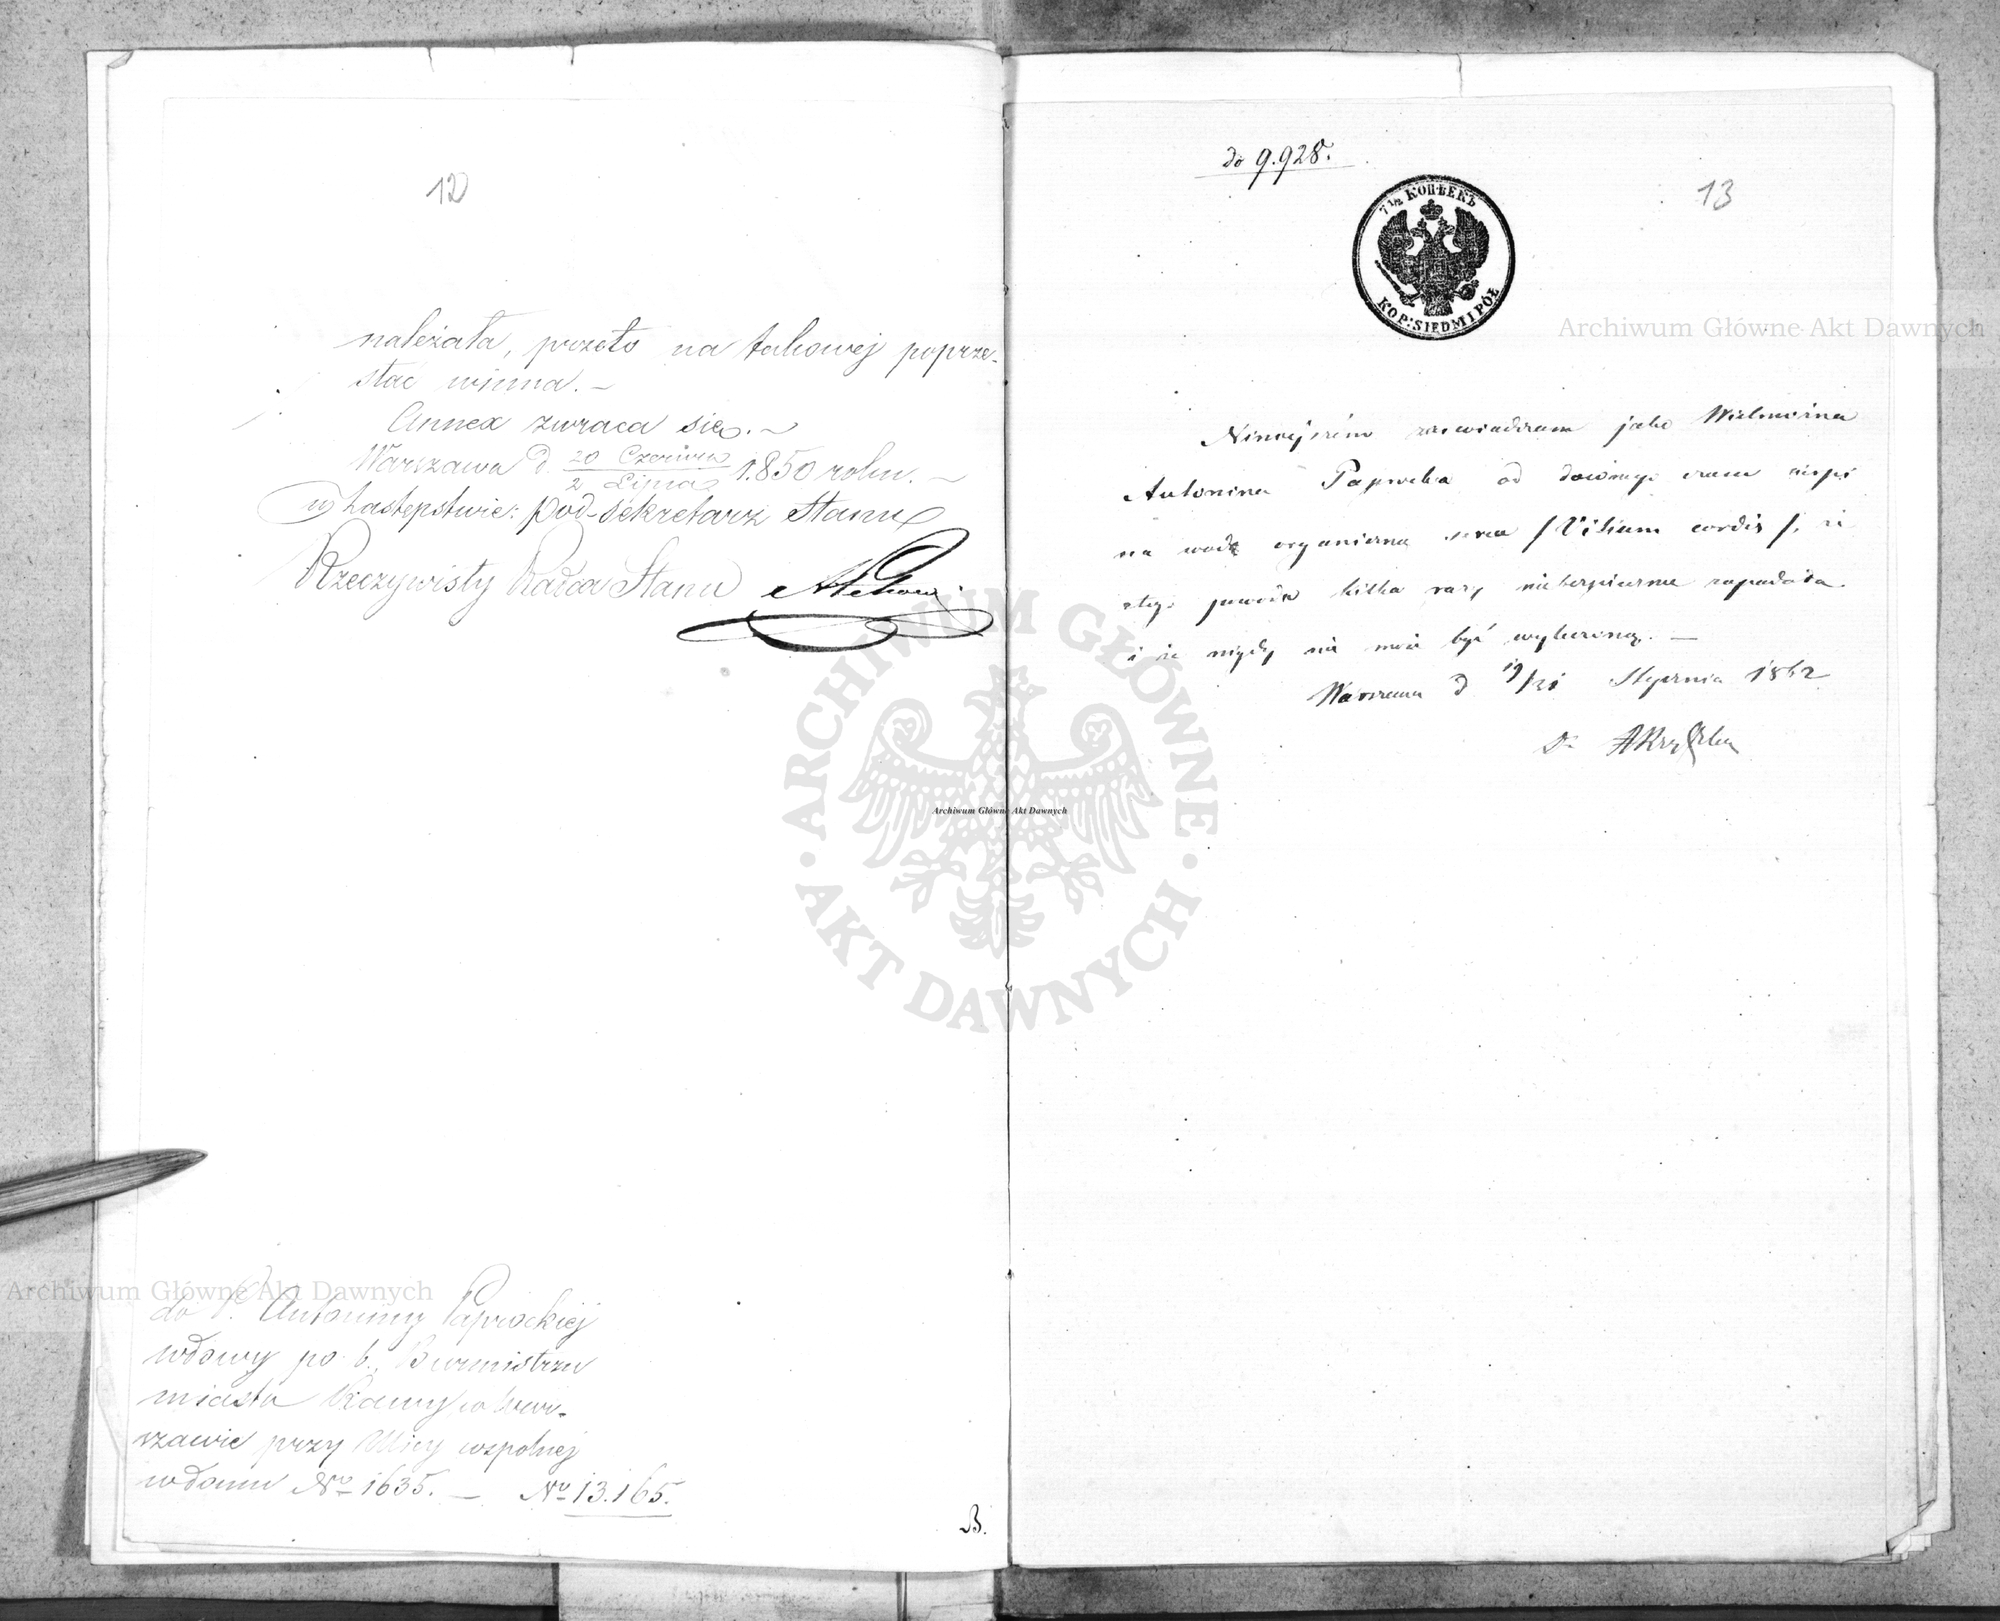 12
należała, przeto na takowej poprze-
stać winna. –
Annex zwraca się. –
Warszawa d. 20 Czerwca / 2 Lipca 1850 roku. –
w Zastępstwie: Pod-Sekretarz Stanu
Rzeczywisty Radca Stanu
do P. Antoniny Paprockiej
wdowy po b. Burmistrzu
miasta Rawy w War-
szawie przy Ulicy wspólnej
w domu No 1635. – No 13.165.
B.
do 9.928.
13
7 1/2 КОПѢЕКЪ
KOP: SIEDM I PÓŁ
Niniejszém zaświadczam jako Wielmożna
Antonina Paprocka od dawnego czasu cierpi
na wadę organiczną serca /Vitium cordis/, że
z tego powodu kilka razy niebezpiecznie zapadała
i że nigdy nie może być wyleczoną. –
Warszawa d 19/31 Stycznia 1862
Dr
Archiwum Główne Akt Dawnych
Archiwum Główne Akt Dawnych
Archiwum Główne Akt Dawnych
ARCHIWUM GŁÓWNE
AKT DAWNYCH